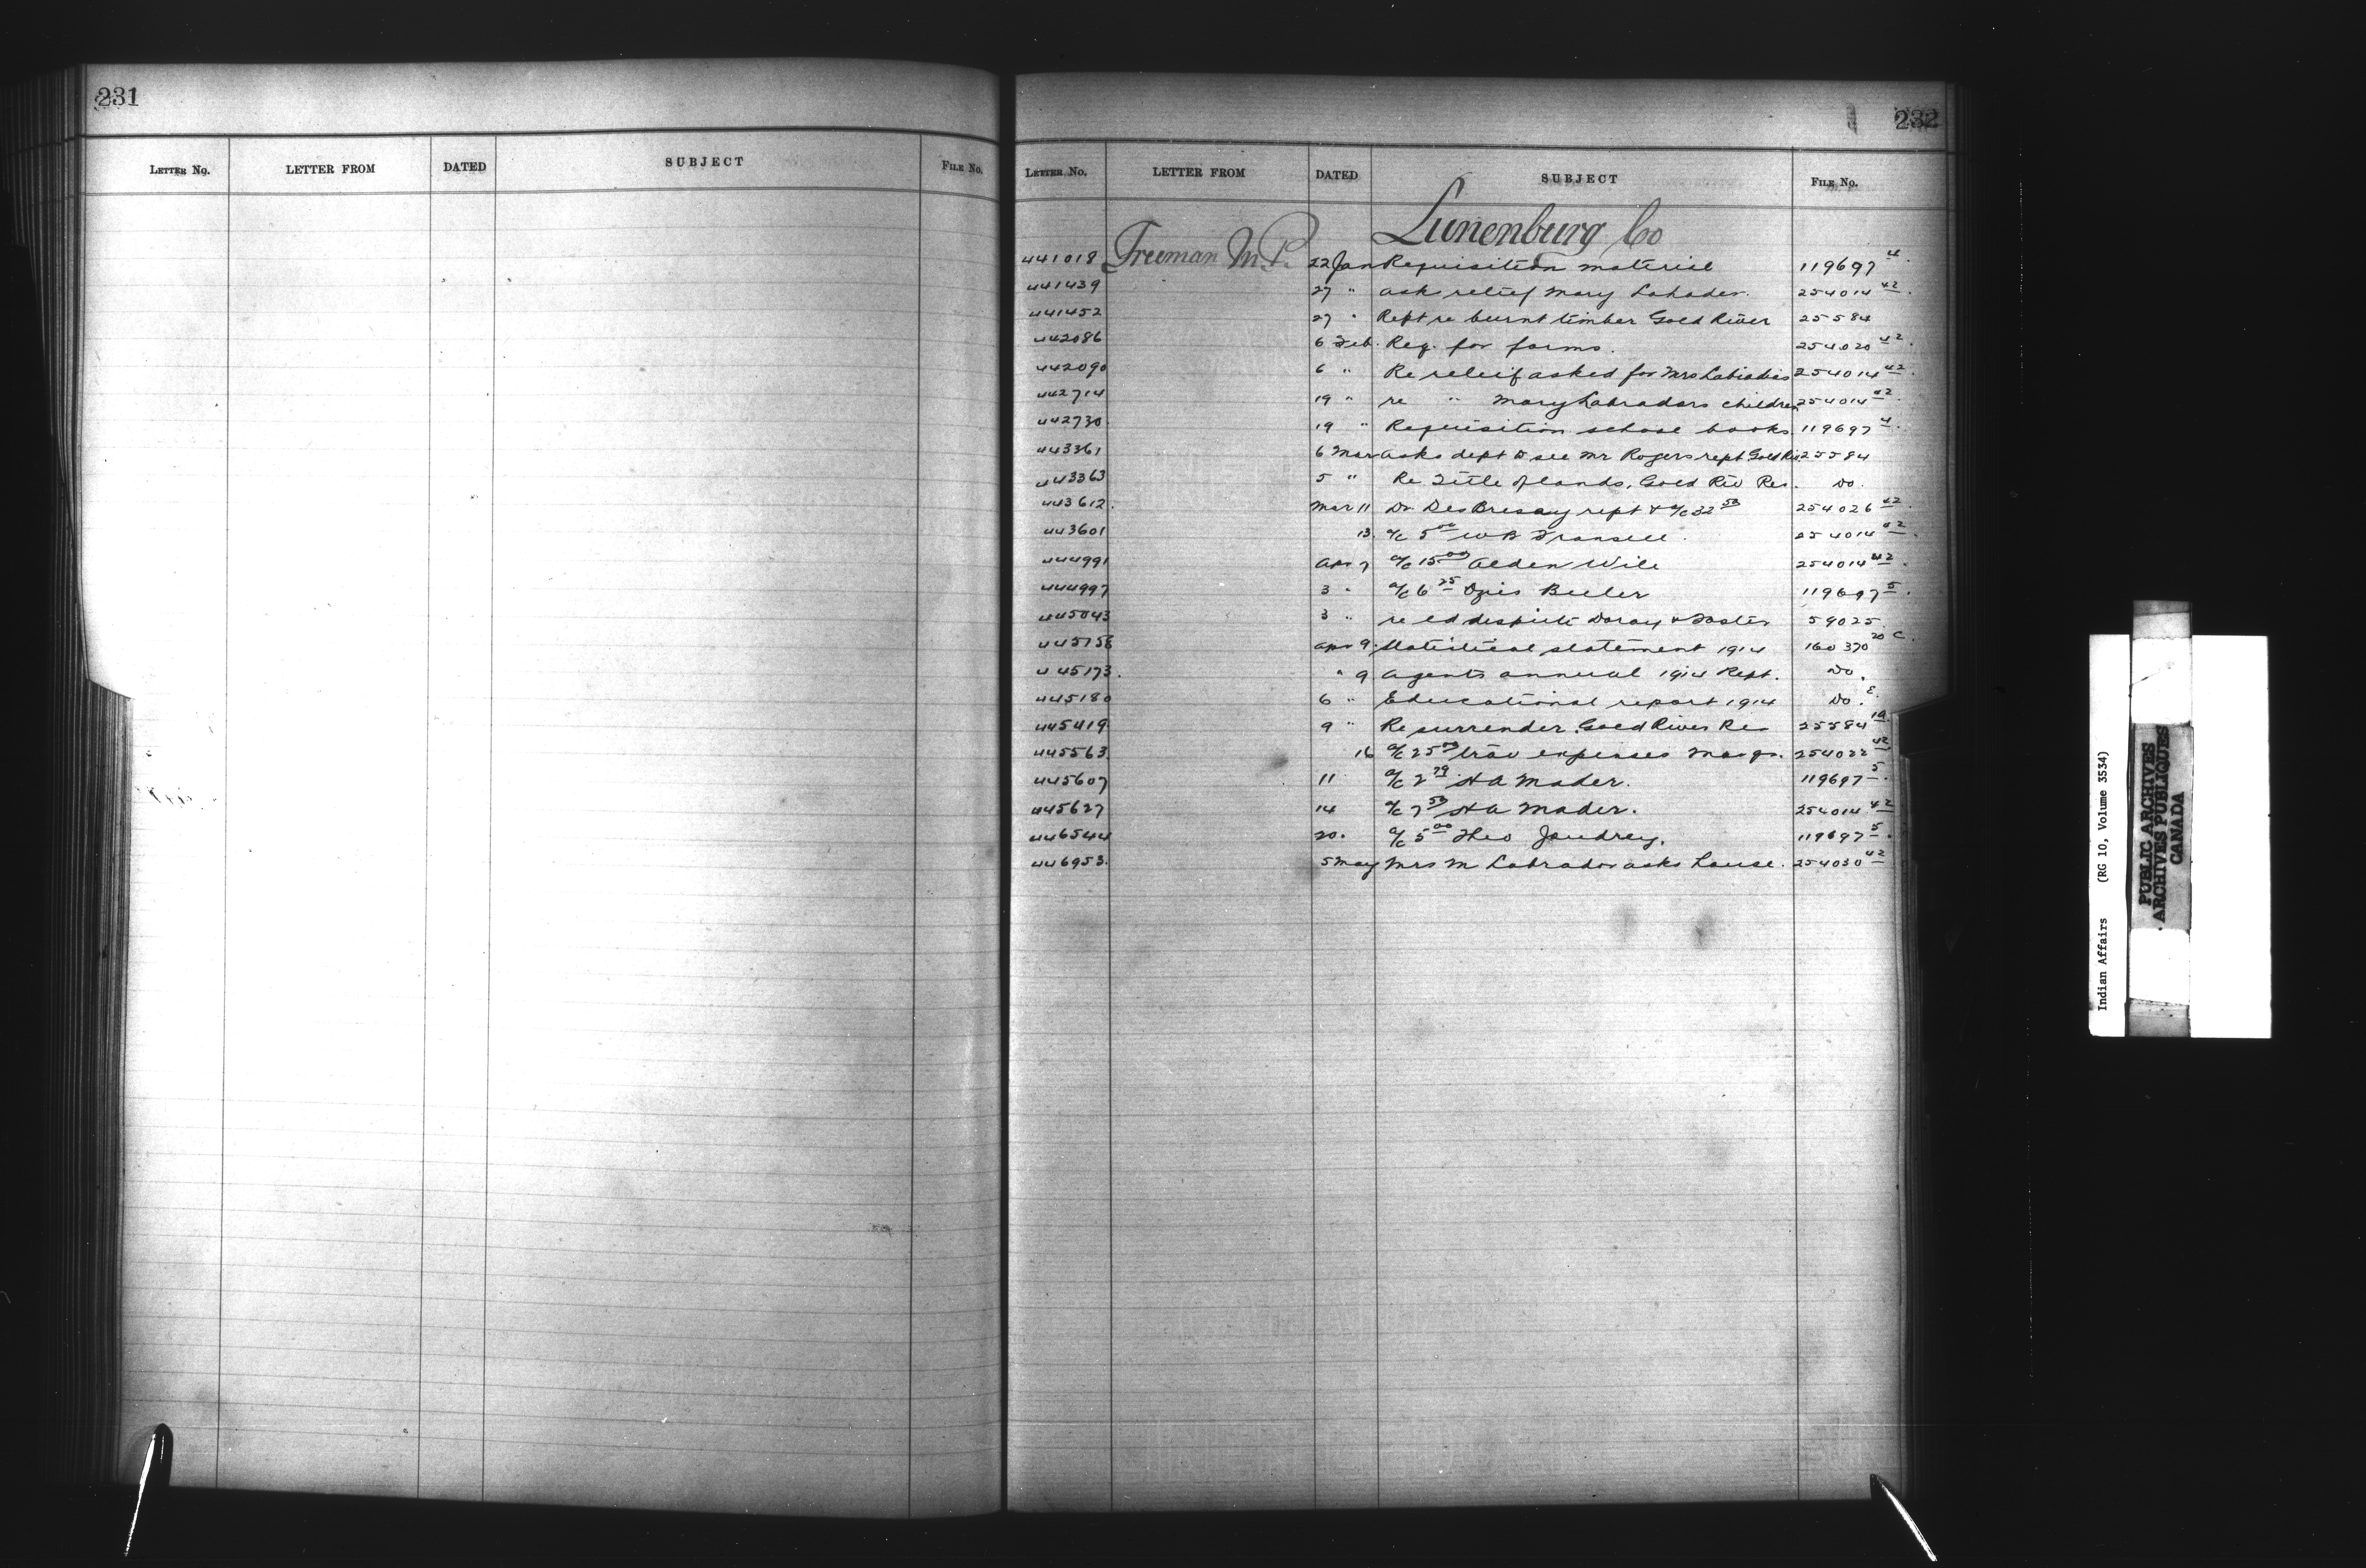 231
LETTER No. LETTER FROM DATED SUBJECT FILE No.
232
LETTER No. LETTER FROM DATED SUBJECT FILE No.
Lunenburg Co
441018 Freeman M.P. 22 Jan Requisition material 119697 4
441439 27 " ask relief Mary 254014 42
441452 27 " Rept re burnt timber Gold River 25584
442086 6 Feb. Req. for forms. 254020 42
442090 6 " Re relief asked for Mrs 254014 42
442714 19 " re " Mary Labradors children 254014 42
442730 19 " Requisition school books. 119697 4
443361 6 Mar asks dept to see Mr Rogers rept Gold Riv 25584
443363 5 " Re Title of lands, Gold Riv Res. Do.
443612. Mar 11 Dr. DesBresay rept & a/c 32 50 254026 42
443601 13. a/c 5 00 W B 254014 42
444991 Apr 7 a/c 15 00 Alden Wile 254014 42
444997 3 " a/c 6 25 Beeler 119697 5
445043 3 " re ld dispute & 59025
445158 Apr 9. Statistical statement 1914 160370 20 C.
445173. " 9 Agents annual 1914 Rept. Do.
445180 6 " Educational report 1914 Do. E.
445419 9 " Re surrender Gold River Res 25584 1A
445563. 16 a/c 25 00 trav expenses Mar qr. 254022 42
445607 11 a/c 2 79 H A Mader. 119697 5
445627 14 a/c 7 50 H A Mader. 254014 42
446544 20. a/c 5 00 Theo Jaudrey. 119697 5
446953. 5 May Mrs M Labrador asks house. 254030 42
Indian Affairs (RG 10, Volume 3534)
PUBLIC ARCHIVES
ARCHIVES PUBLIQUES
CANADA